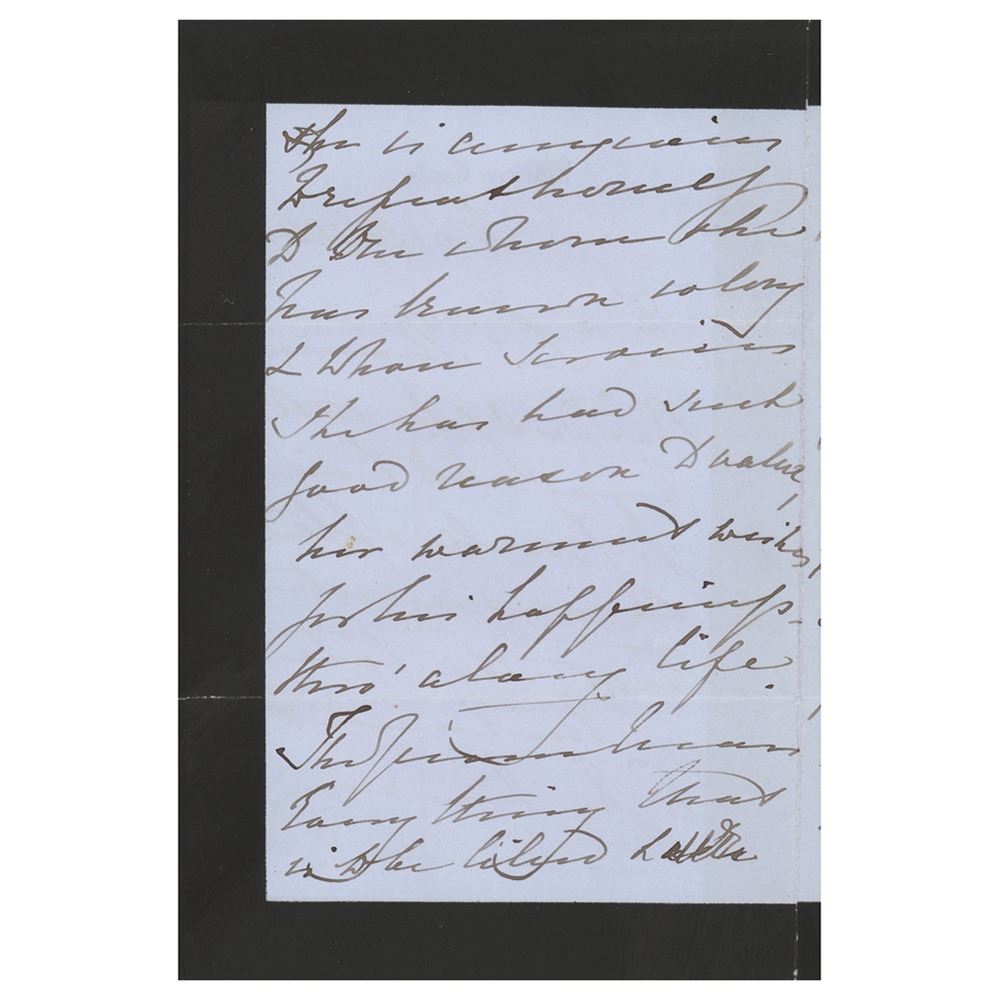 She is anxious
to repeat herself
to one whom she
has known so long
& whose services
she has had such
good reason to value,
her warmest wishes
for his happiness
thro' a long life.
The Queen hears
everything that
is to be liked &